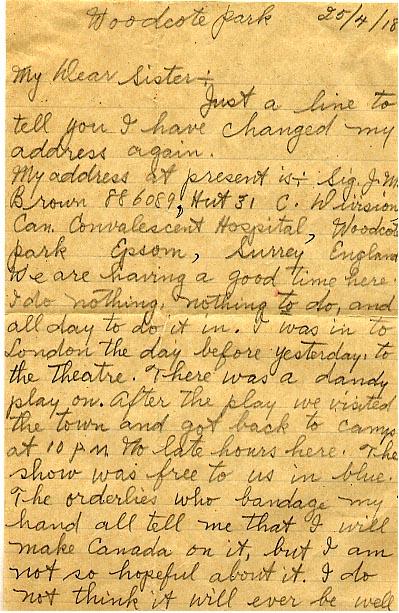 Woodcote Park 25/4/18
My Dear Sister:-
Just a line to
tell you I have changed my
address again.
My address at present is:- Sig. J. M.
Brown 886089, Hut 31 C. Division
Can. Convalescent Hospital, Woodcote
Park Epsom, Surrey England
We are having a good time here.
I do nothing, nothing to do, and
all day to do it in. I was in to
London the day before yesterday, to
the theatre. There was a dandy
play on. After the play we visited
the town and got back to camp
at 10 P.M. No late hours here. The
show was free to us in blue.
The orderlies who bandage my
hand all tell me that I will
make Canada on it, but I am
not so hopeful about it. I do
not think it will ever be well